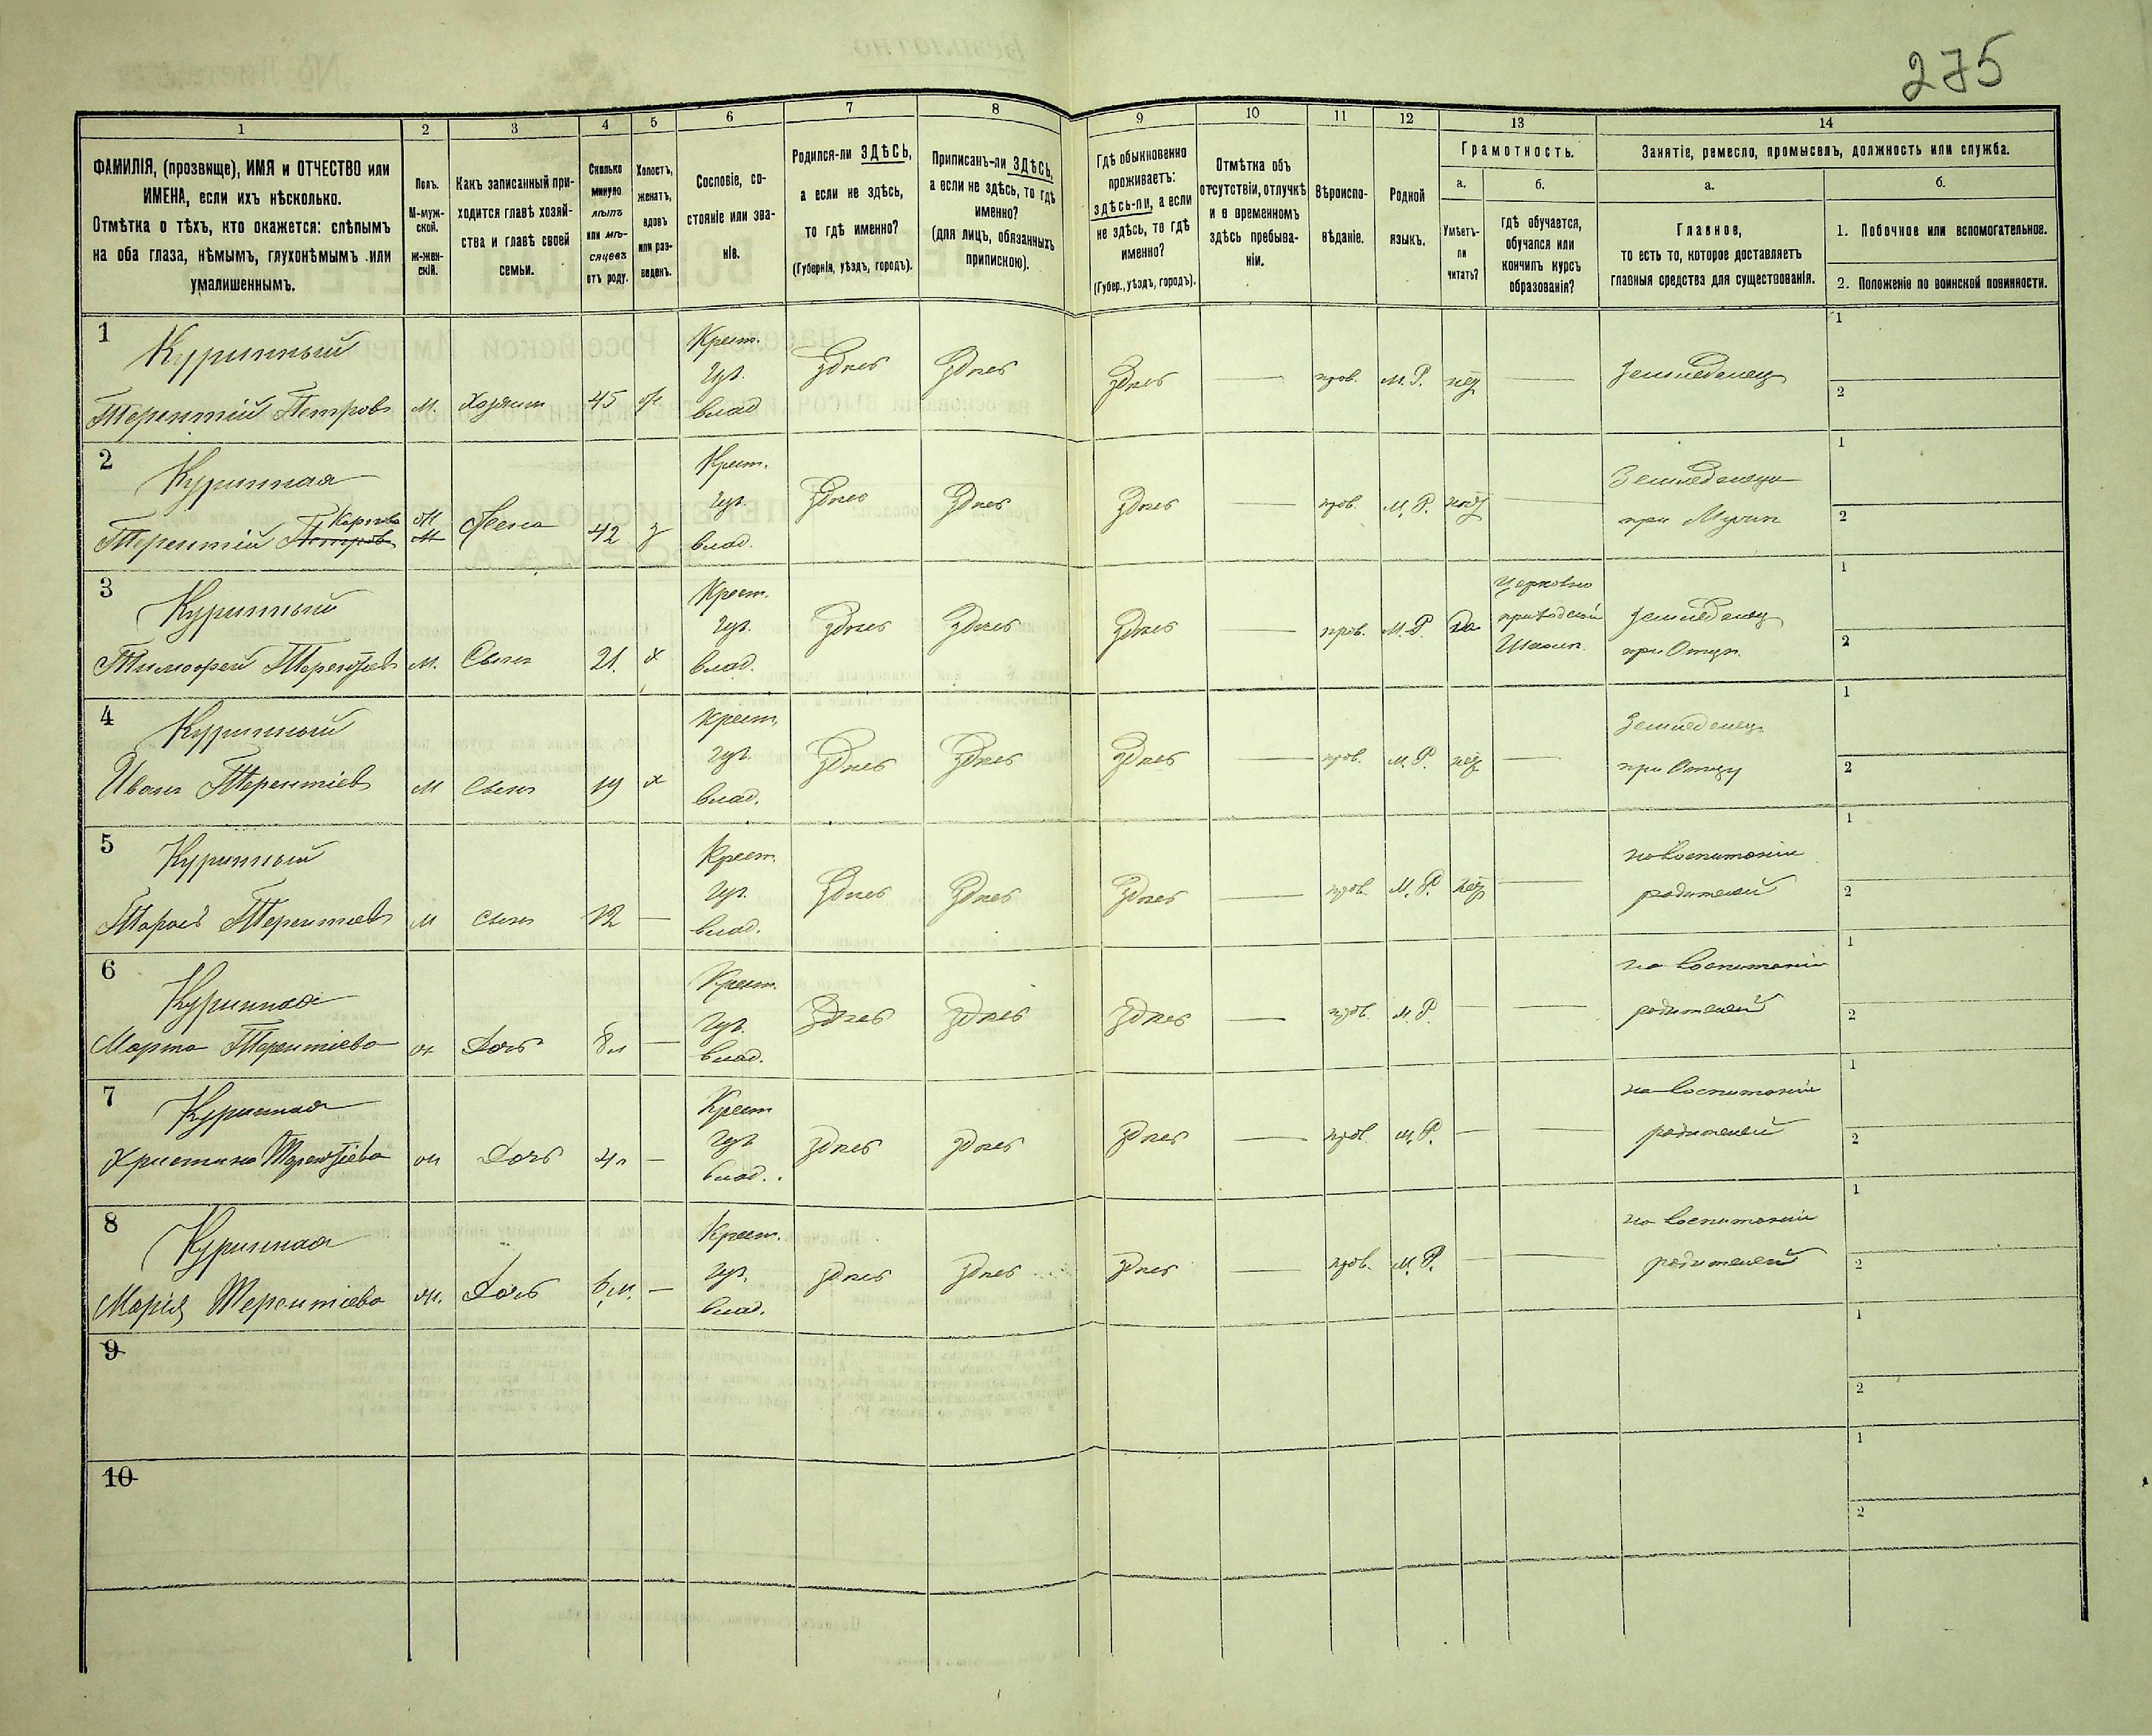 275
1 2 3 4 5 6 7 8 9 10 11 12 13 14
ФАМИЛІЯ, (прозвище), ИМЯ и ОТЧЕСТВО или
ИМЕНА, если ихъ нѣсколько.
Отмѣтка о тѣхъ, кто окажется: слѣпымъ
на оба глаза, нѣмымъ, глухонѣмымъ или
умалишеннымъ.
Полъ.
М-муж-
ской.
ж-жен-
скій.
Какъ записанный при-
ходится главѣ хозяй-
ства и главѣ своей
семьи.
Сколько
минуло
лѣтъ
или мѣ-
сяцевъ
отъ роду.
Холостъ,
женатъ,
вдовъ
или раз-
веденъ.
Сословіе, со-
стояніе или зва-
ніе.
Родился-ли ЗДѢСЬ,
а если не здѣсь,
то гдѣ именно?
(Губернія, уѣздъ, городъ).
Приписанъ-ли ЗДѢСЬ,
а если не здѣсь, то гдѣ
именно?
(для лицъ, обязанныхъ
припискою).
Гдѣ обыкновенно
проживаетъ:
здѣсь-ли, а если
не здѣсь, то гдѣ
именно?
(Губер., уѣздъ, городъ).
Отмѣтка объ
отсутствіи, отлучкѣ
и о временномъ
здѣсь пребыва-
ніи.
Вѣроиспо-
вѣданіе.
Родной
языкъ.
Грамотность.
а.
Умѣетъ-
ли
читать?
б.
гдѣ обучается,
обучался или
кончилъ курсъ
образованія?
Занятіе, ремесло, промыселъ, должность или служба.
а.
Главное,
то есть то, которое доставляетъ
главныя средства для существованія.
б.
1. Побочное или вспомогательное.
2. Положеніе по воинской повинности.
1
Куринный
Терентій Петровъ м. Хозяин 45 ж
Крест.
влад
Здѣсь Здѣсь Здѣсь — прав. М. Р. нѣт — Земледелец
1
2
2
Куринная
Карпова
Терентій Петровъ Жена 42 з
Крест.
влад.
Здѣсь Здѣсь Здѣсь — прав. М. Р. —
при Мужѣ
1
2
3
Куринный
Тимофей Терентіев м. Сынъ 21. х
Крест.
влад.
Здѣсь Здѣсь Здѣсь — прав. М. Р. да
Церковно
приходской
Школѣ.
Земледелец
при Отцѣ.
1
2
4
Куринный
Иванъ Терентіев м Сынъ 19 х
Крест.
влад.
Здѣсь Здѣсь Здѣсь — прав. М. Р. нѣт —
Земледелец
при Отцу
1
2
5
Куринный
Тарасъ Терентіев м сынъ 12 —
Крест.
влад.
Здѣсь Здѣсь Здѣсь — прав. М. Р. нѣт —
на воспитаніи
родителей
1
2
6
Куринная
Марта Терентіева ж Дочь 8 л —
Крест.
влад.
Здѣсь Здѣсь Здѣсь — прав. М. Р — —
на воспитаніи
родителей
1
2
7
Куринная
Христина Терентіева ж Дочь 4 л —
Крест
влад.
Здѣсь Здѣсь Здѣсь — прав. М. Р. — —
на воспитаніи
родителей
1
2
8
Куринная
Марія Терентіева ж. Дочь 6 м. —
Крест.
влад.
Здѣсь Здѣсь Здѣсь — прав. М. Р. — —
на воспитаніи
родителей
1
2
9
1
2
10
1
2